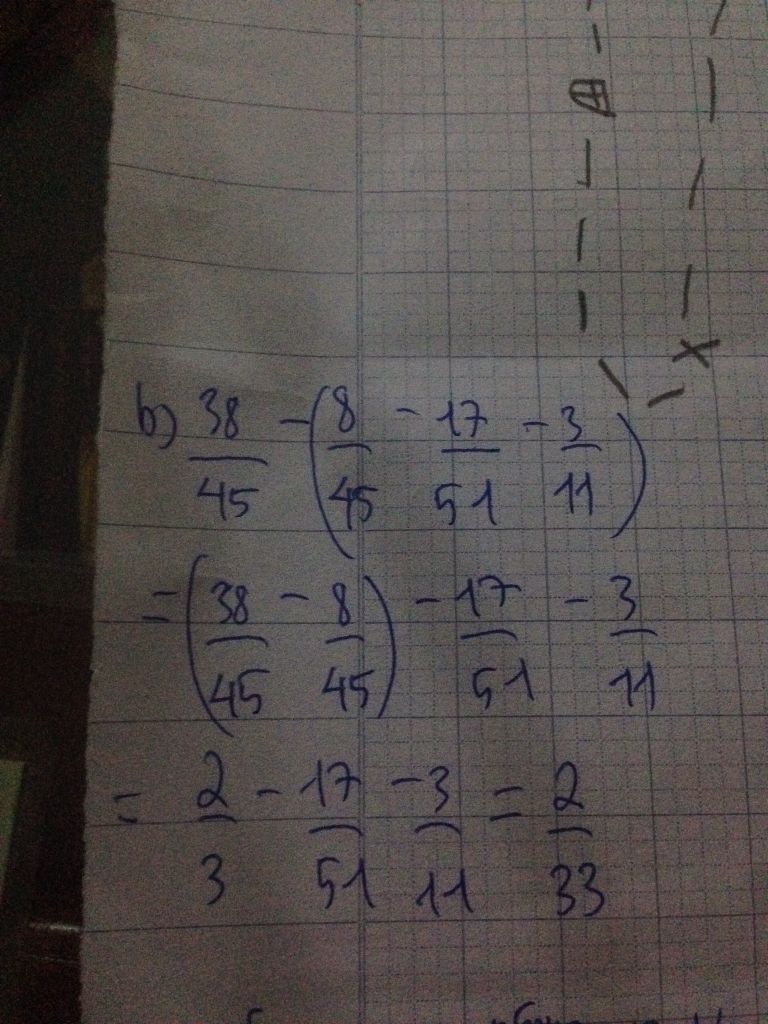 b) 38/45 - (8/45 - 17/51 - 3/11)
= (38/45 - 8/45) - 17/51 - 3/11
= 2/3 - 17/51 - 3/11 = 2/33